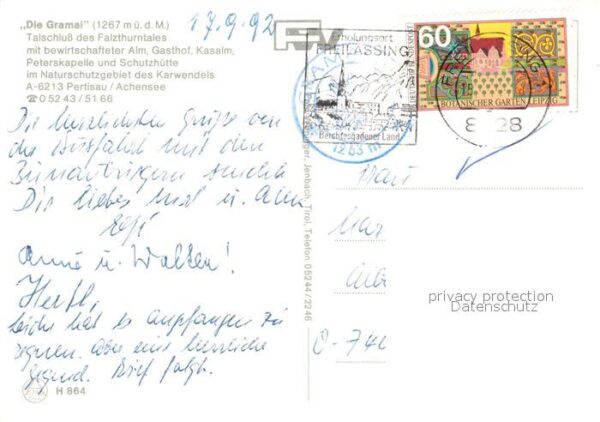 „Die Gramai" (1267 m ü. d. M.)
Talschluß des Falzthurntales
mit bewirtschafteter Alm, Gasthof, Kasalm,
Peterskapelle und Schutzhütte
im Naturschutzgebiet des Karwendels
A-6213 Pertisau / Achensee
☎ 0 52 43 / 51 66
17.9.92
Erholungsort
FREILASSING
Berchtesgadener Land
1263 m
60
BOTANISCHER GARTEN LEIPZIG
Die herzlichsten Grüße von
der Busfahrt mit den
sendet
Dir liebes und u. Alen
Resi
Anni u. Walter!
Hertl,
leider hat es angefangen zu
regnen. Aber eine herrliche
Gegend. Brief folgt.
H 864
Jenbach, Tirol, Telefon 05244/2246
privacy protection
Datenschutz